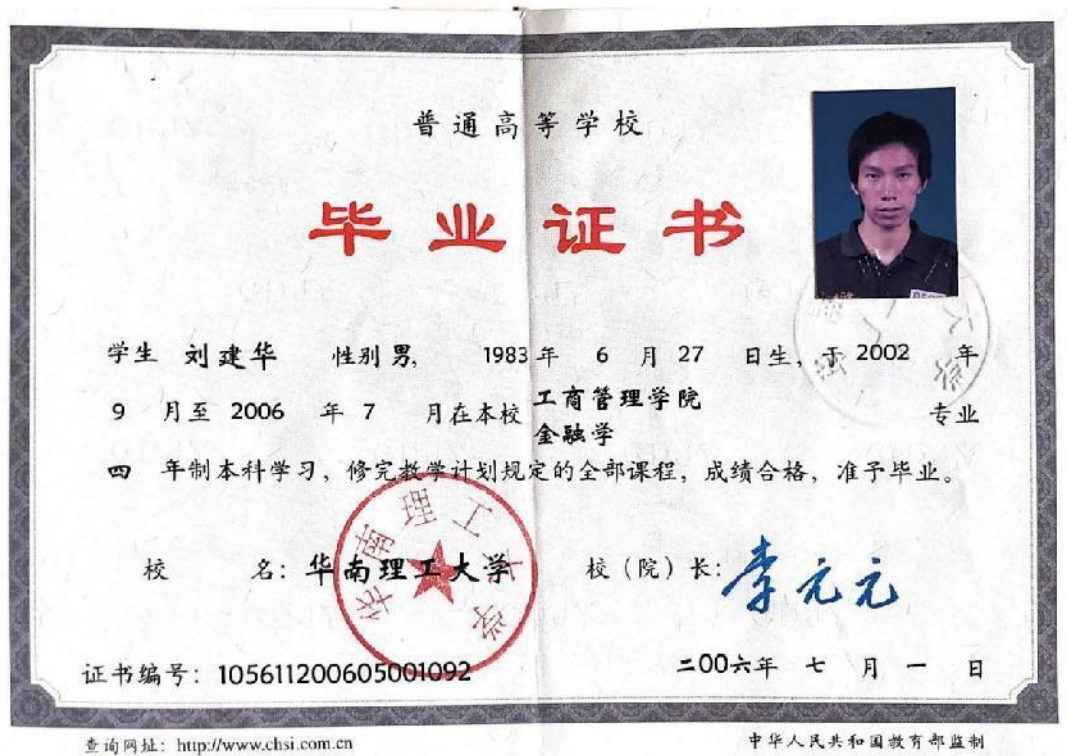 普通高等学校
毕业证书
学生 刘建华 性别 男, 1983 年 6 月 27 日生, 于 2002 年
9 月至 2006 年 7 月在本校 工商管理学院 金融学 专业
四 年制本科学习, 修完教学计划规定的全部课程, 成绩合格, 准予毕业。
华南理工大学
校 名: 华南理工大学 校(院)长: 李元元
证书编号: 105611200605001092 二00六年 七 月 一 日
查询网址: http://www.chsi.com.cn 中华人民共和国教育部监制